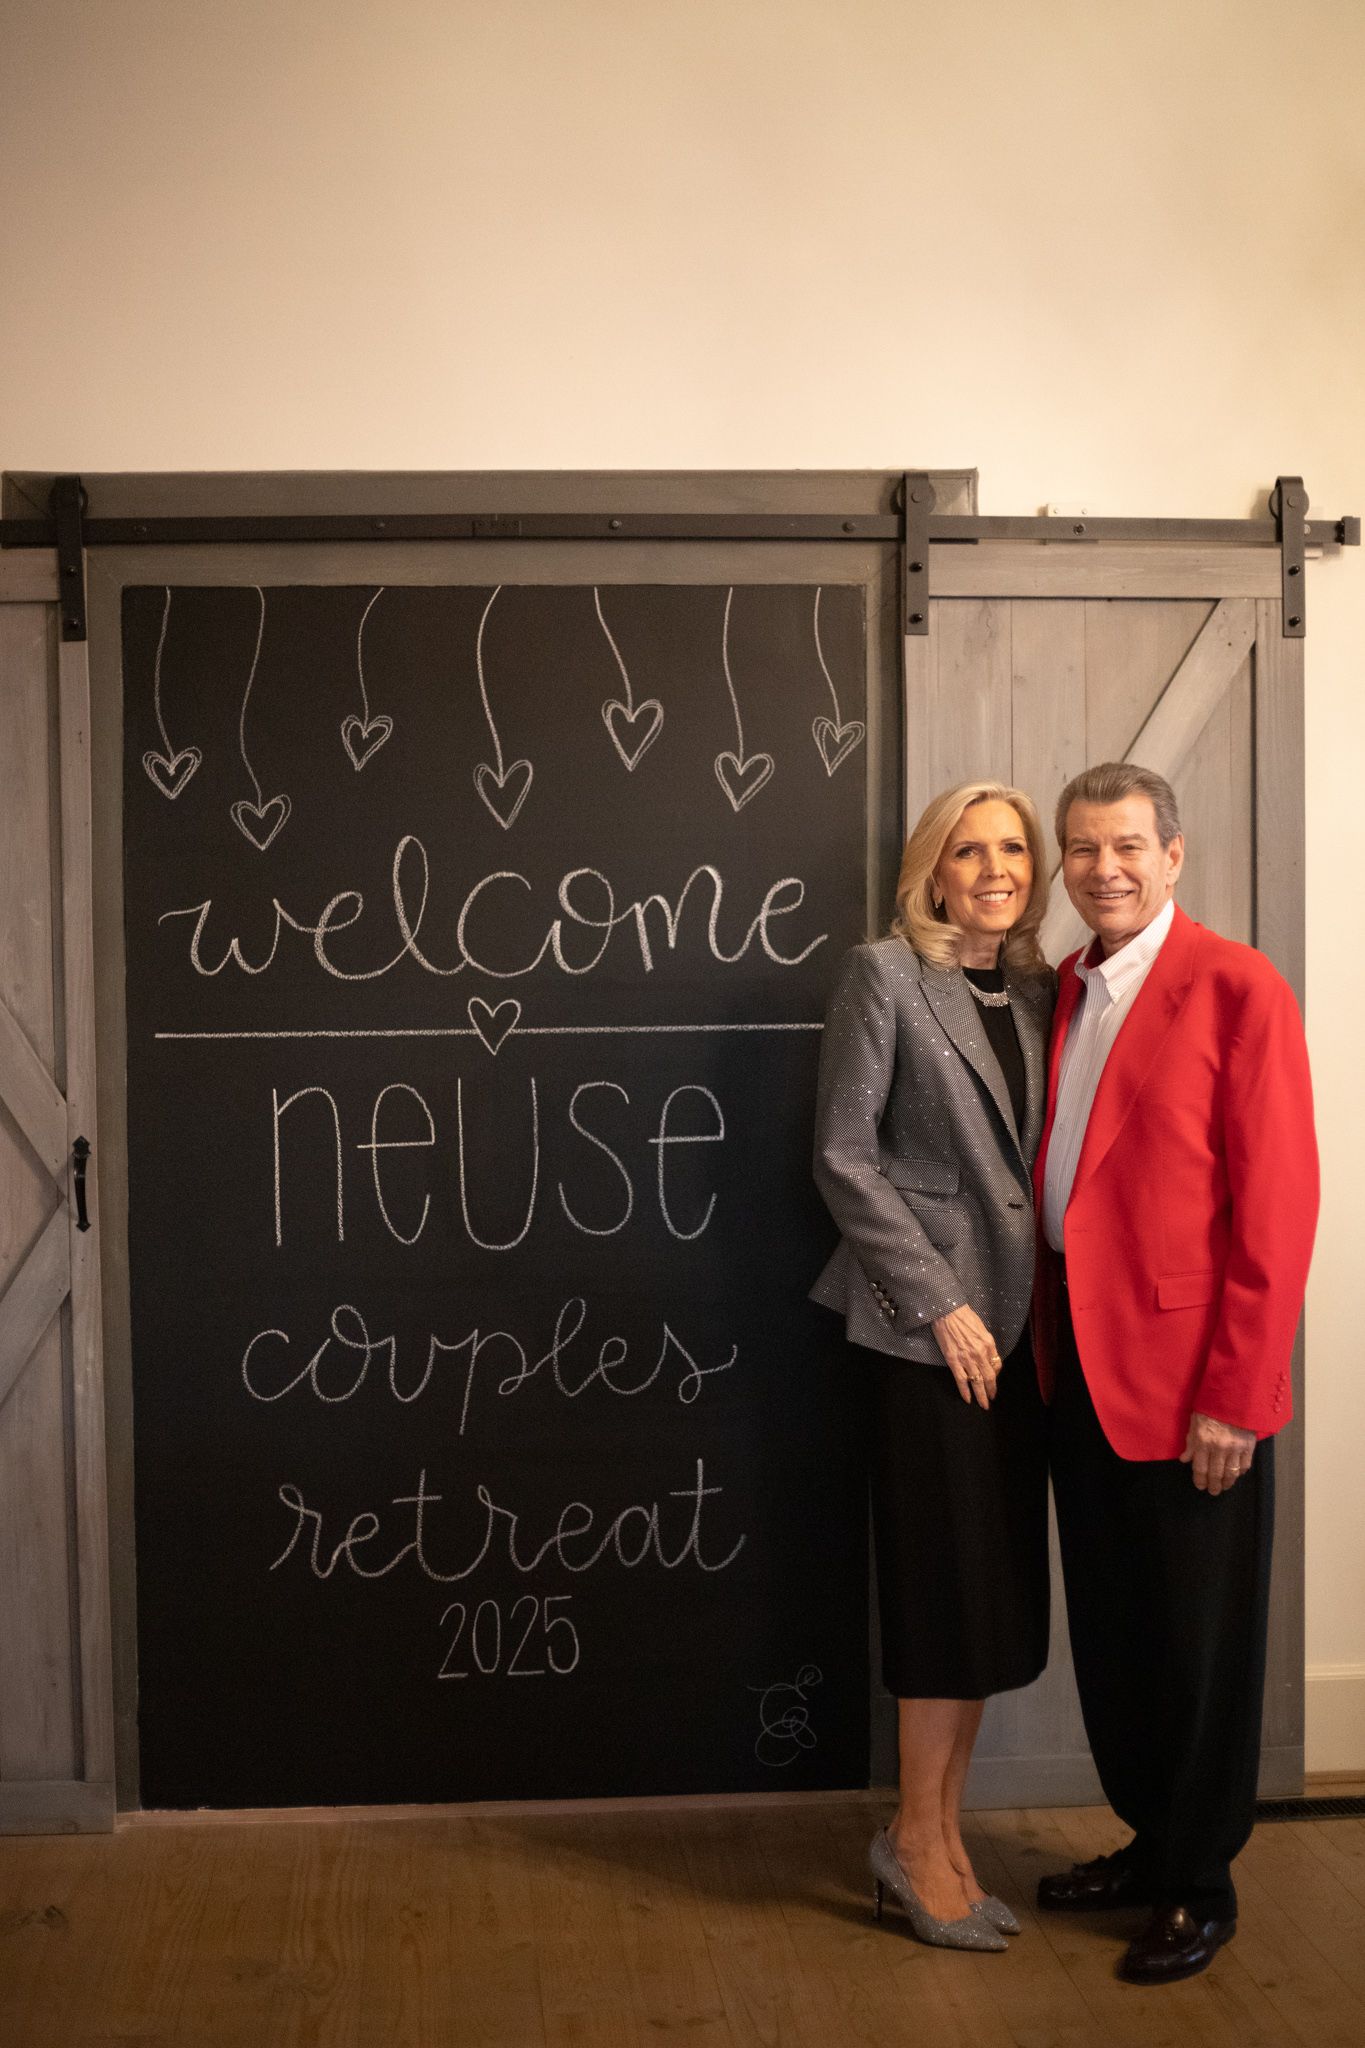 welcome
neuse
couples
retreat
2025